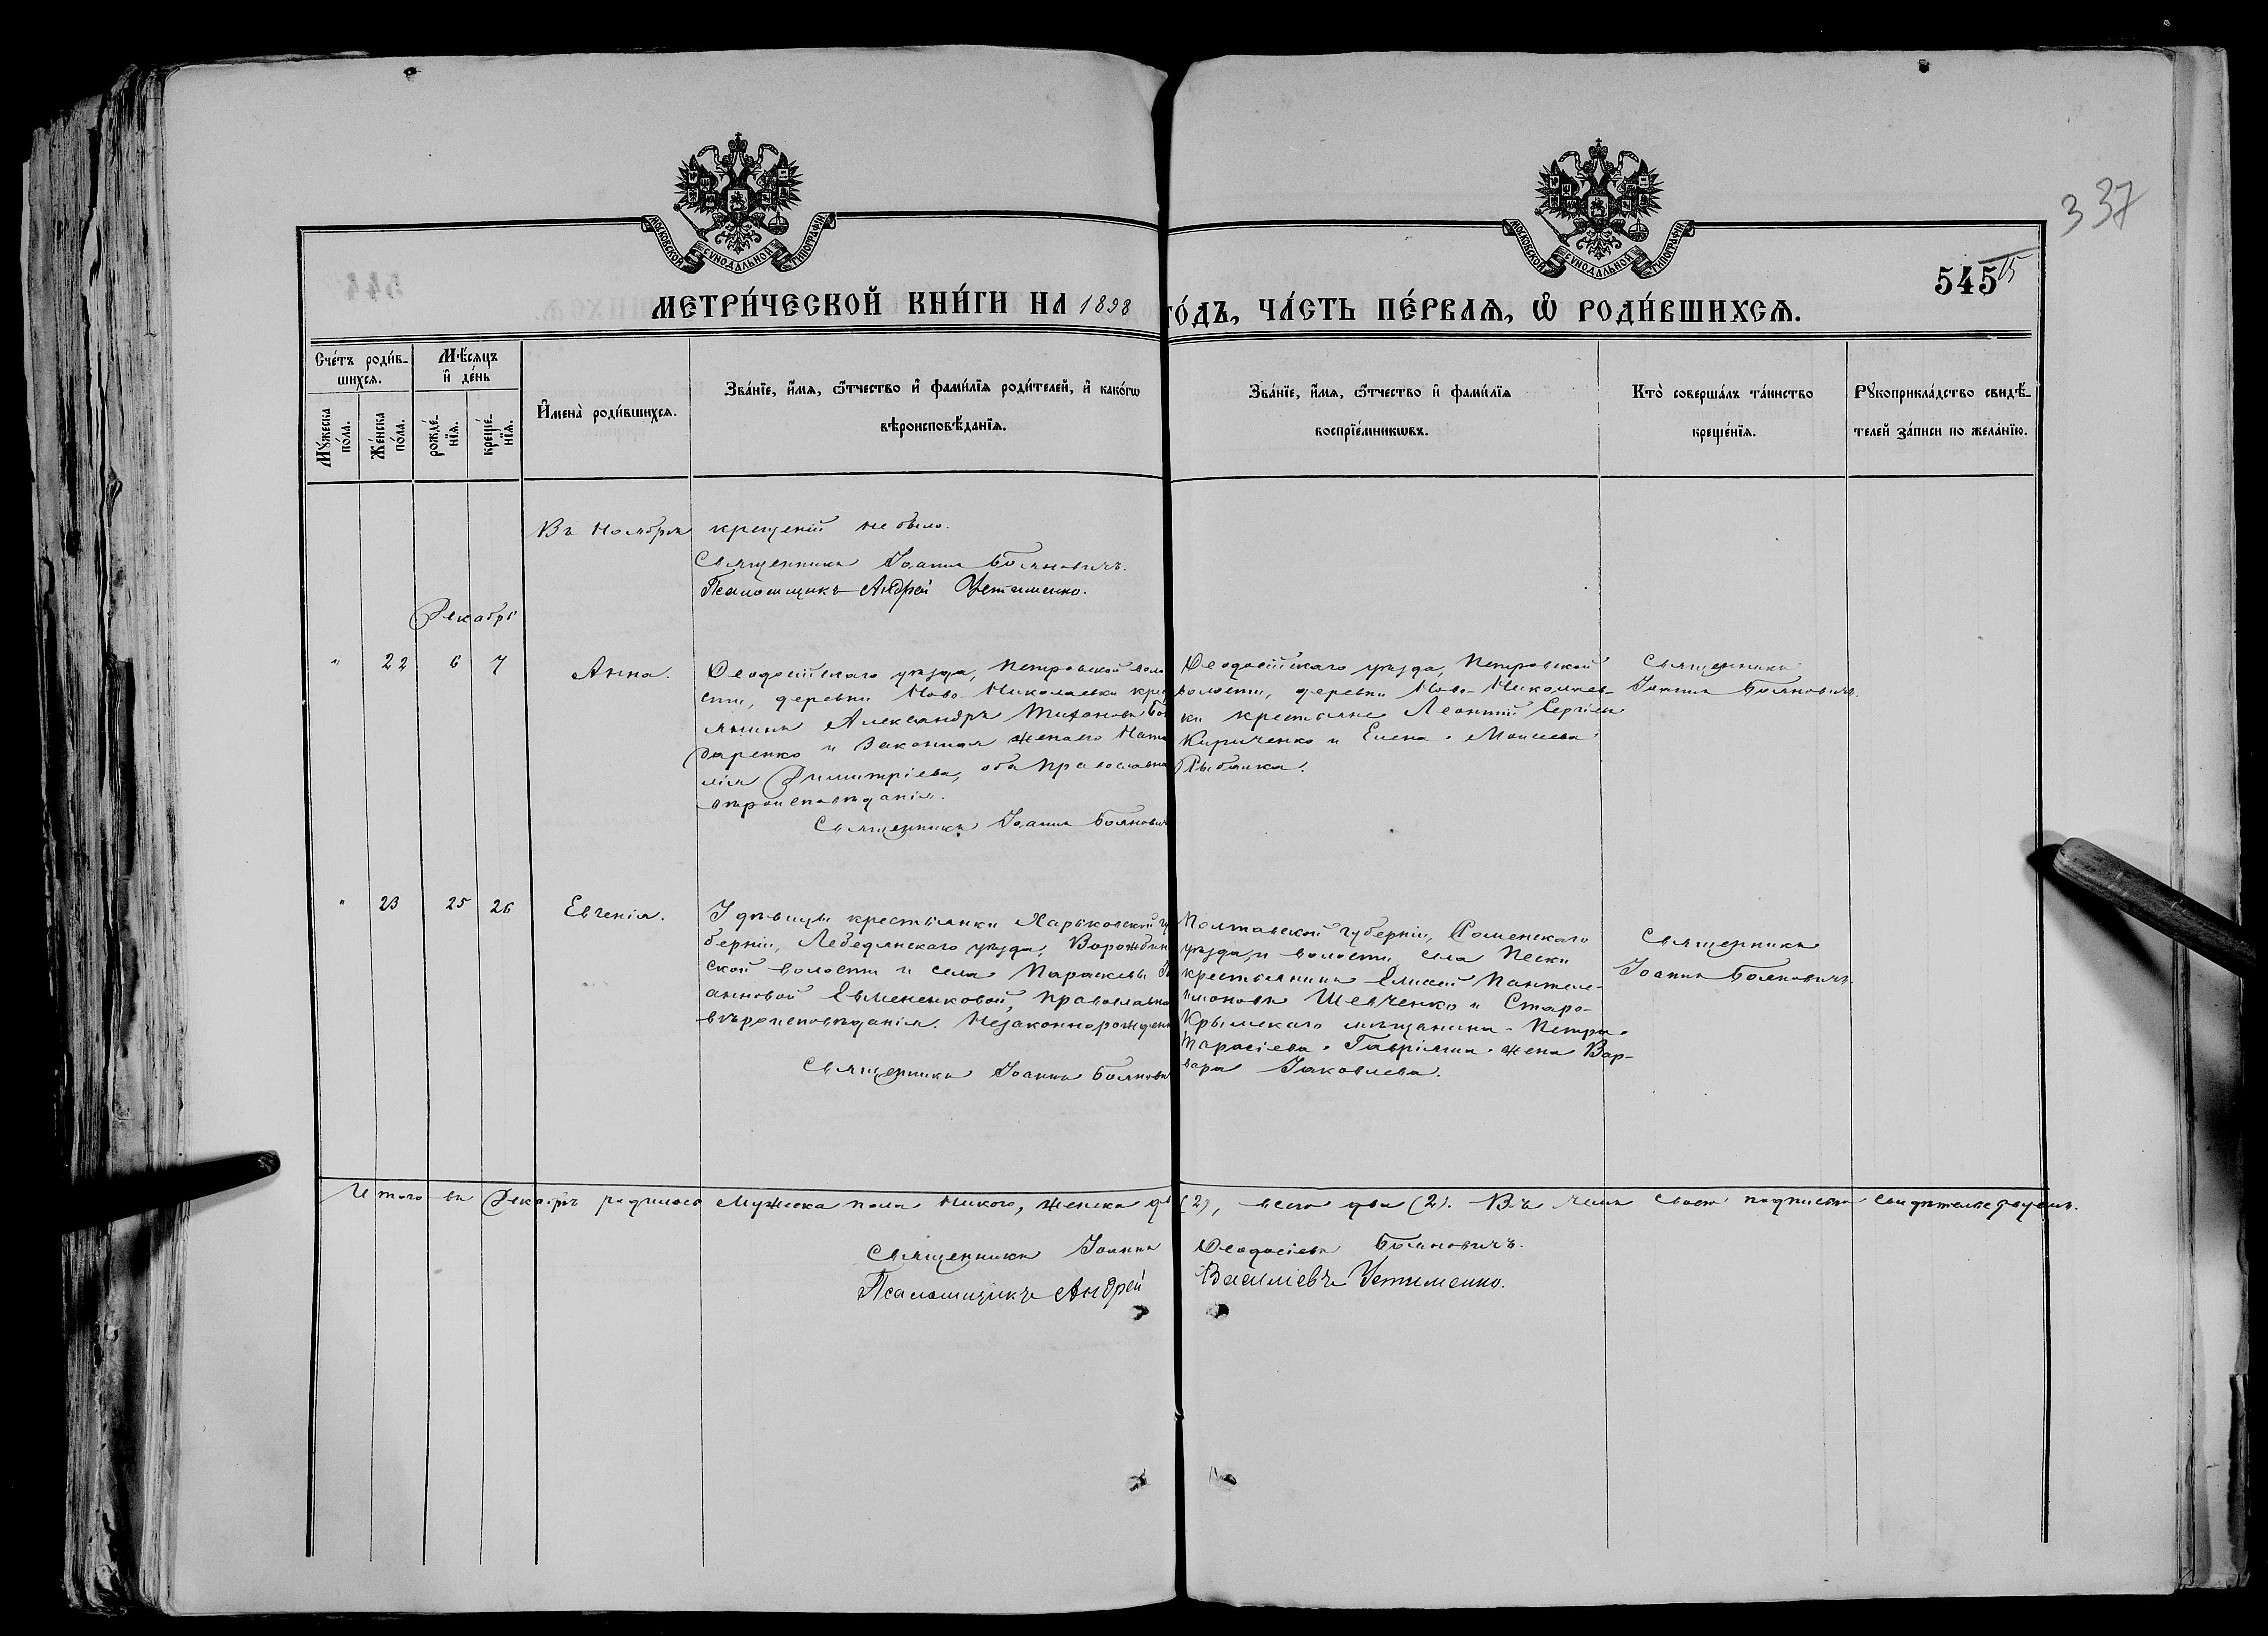 337
МОСКОВСКОЙ СѴНОДАЛЬНОЙ ТИПОГРАФІИ
МОСКОВСКОЙ СѴНОДАЛЬНОЙ ТИПОГРАФІИ
545
15
МЕТРИ́ЧЕСКОЙ КНИ́ГИ НА 1898 ГО́ДЪ, ЧА́СТЬ ПЕ́РВАѦ, Ѡ҆ РОДИ́ВШИХСѦ.
Сче́тъ роди́в-
шихся.
Мѣ́сяцъ
и҆ де́нь
Мꙋ́жеска
по́ла.
Же́нска
по́ла.
рожде́-
нїя.
креще́-
нїя.
И҆мена̀ роди́вшихся.
Зва́нїе, и҆́мя, ѻ҆́тчество и҆ фами́лїя роди́телей, и҆ како́гѡ
вѣроисповѣ́данїя.
Зва́нїе, и҆́мя, ѻ҆́тчество и҆ фами́лїя
воспрїе́мникѡвъ.
Кто̀ соверша́лъ та́инство
креще́нїя.
Рꙋкоприкла́дство свидѣ́-
телей за́писи по жела́нїю.
Въ Ноябрѣ крещеній не было.
Священникъ Іоаннъ Бояновичъ.
Псаломщикъ Андрей Устименко.
Декабрь
" 22 6 7 Анна.
Ѳеодосійскаго уѣзда, Петровской воло
сти, деревни Ново-Николаевки кре
янинъ Александръ Тихоновъ Бон
даренко и законная жена его Ната
лія Димитріева, оба православна
вѣроисповѣданія.
Священникъ Іоаннъ Боянович
Ѳеодосійскаго уѣзда, Петровской
волости, деревни Ново-Николаев-
ки крестьяне Леонтій Сергіевъ
Кириченко и Елена Моисеева
Рыбалка.
Священникъ
Іоаннъ Бояновичъ.
" 23 25 26 Евгенія.
У дѣвицы крестьянки Харьковской гу
берніи, Лебедянскаго уѣзда, Ворожбян
ской волости и села Параскевы
анновой Евмененковой, православна
вѣроисповѣданія. Незаконнорожден
Священникъ Іоаннъ Боянови
Полтавской губерніи, Роменскаго
уѣзда, и волости, села Пески
крестьянинъ Елисей Пантеле-
имоновъ Шевченко и Старо-
Крымскаго мѣщанина Петра
Тарасіева Гавріляка жена Вар-
вара Іаковлева.
Священникъ
Іоаннъ Бояновичъ.
Итого въ Декабрѣ родилось мужеска пола никого, женска двѣ (2), всего два (2). Въ чемъ своею подписью свидѣтельствуемъ.
Священникъ Іоаннъ Ѳеодосіевъ Бояновичъ.
Псаломщикъ Андрей Василіевъ Устименко.